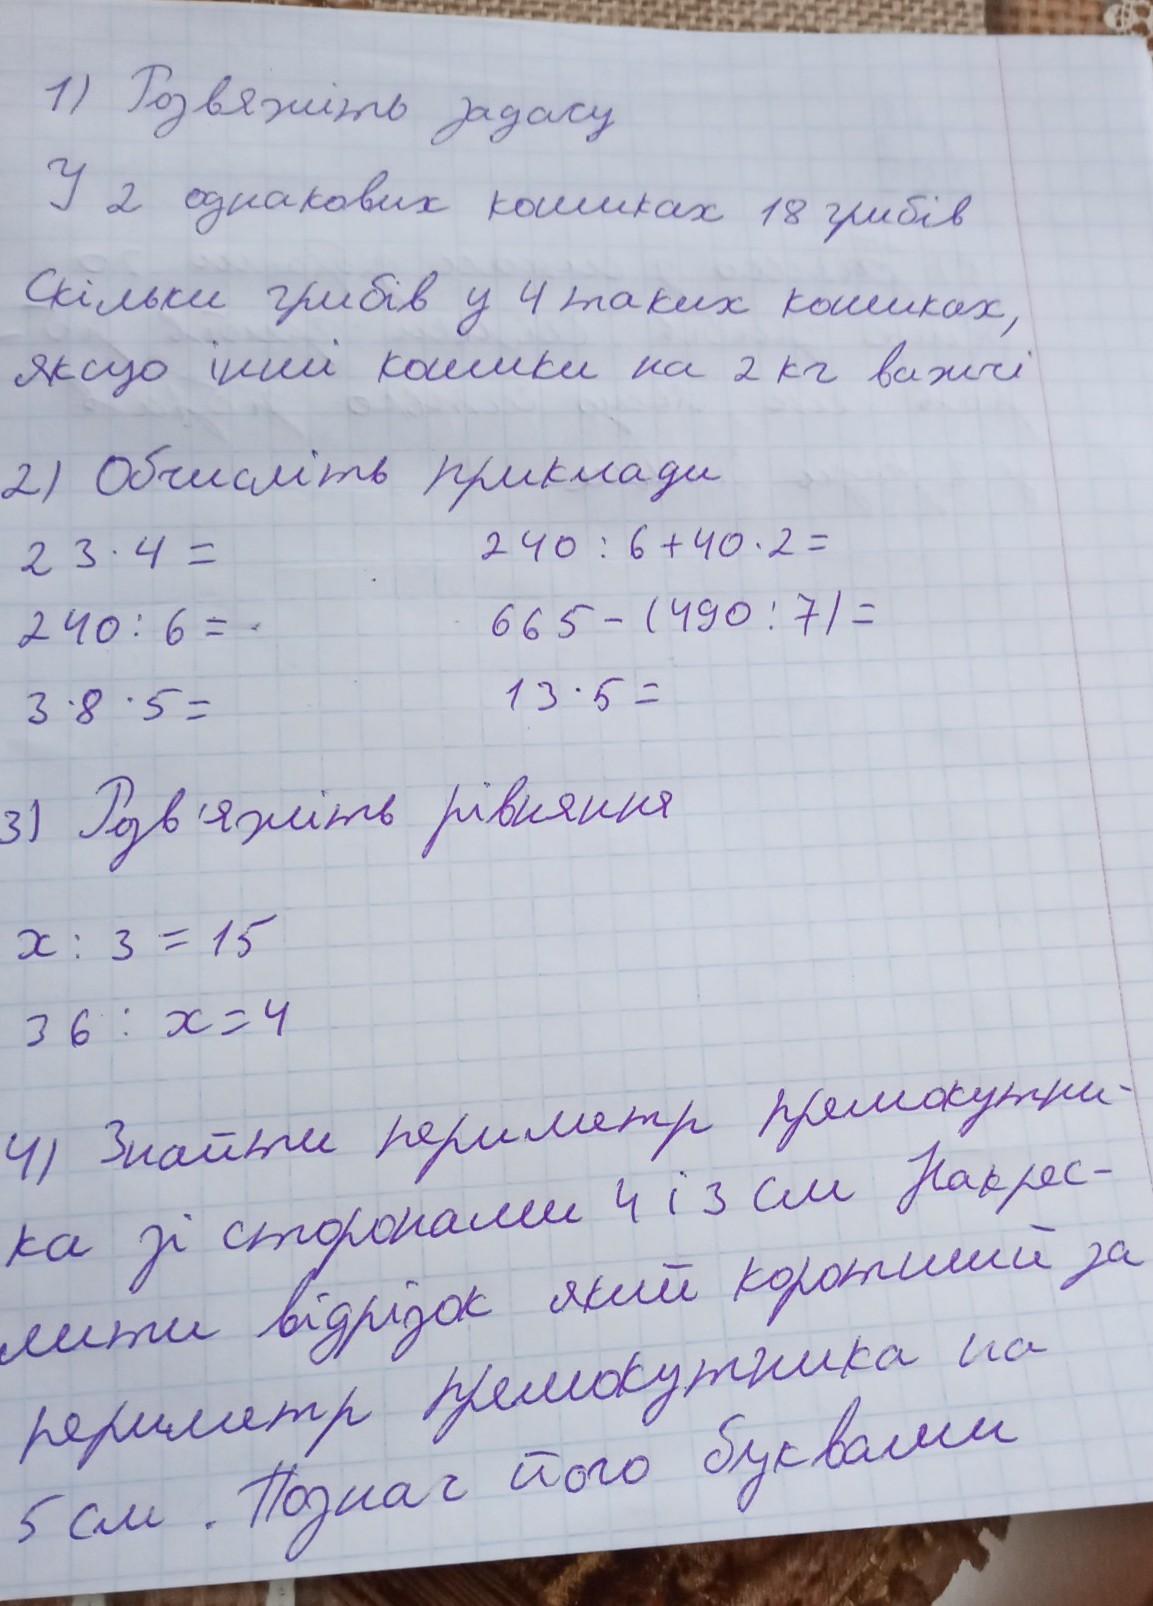 1) Розвяжіть задачу
У 2 однакових кошиках 18 грибів
Скільки грибів у 4 таких кошиках,
якщо інші кошики на 2 кг важчі
2) Обчисліть приклади
23·4=
240:6+40·2=
240:6=
665-(490:7)=
3·8·5=
13·5=
3) Розв'яжіть рівняння
х:3=15
36:х=4
4) Знайти периметр прямокутни-
ка зі сторонами 4 і 3 см Накрес-
лити відрізок який коротший за
периметр прямокутника на
5 см. Познач його буквами